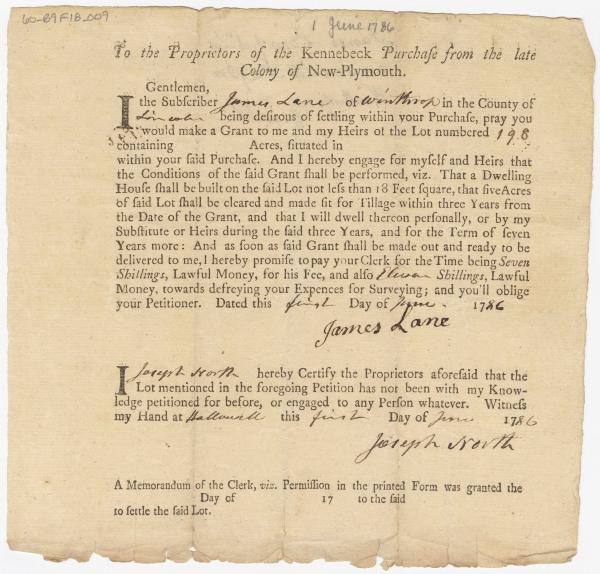 60-B9F18_009
1 June 1786
To the Proprietors of the Kennebeck Purchaſe from the late
Colony of New-Plymouth.
Gentlemen,
I the Subſcriber James Lane of Winthrop in the County of
Lincoln being deſirous of ſettling within your Purchaſe, pray you
would make a Grant to me and my Heirs of the Lot numbered 198
containing Acres, ſituated in
within your ſaid Purchaſe. And I hereby engage for myſelf and Heirs that
the Conditions of the ſaid Grant ſhall be performed, viz. That a Dwelling
Houſe ſhall be built on the ſaid Lot not leſs than 18 Feet ſquare, that five Acres
of ſaid Lot ſhall be cleared and made fit for Tillage within three Years from
the Date of the Grant, and that I will dwell thereon perſonally, or by my
Subſtitute or Heirs during the ſaid three Years, and for the Term of ſeven
Years more: And as ſoon as ſaid Grant ſhall be made out and ready to be
delivered to me, I hereby promiſe to pay your Clerk for the Time being Seven
Shillings, Lawful Money, for his Fee, and alſo Elevan Shillings, Lawful
Money, towards defreying your Expences for Surveying; and you'll oblige
your Petitioner. Dated this first Day of June 1786
James Lane
I Joseph North hereby Certify the Proprietors aforeſaid that the
Lot mentioned in the foregoing Petition has not been with my Know-
ledge petitioned for before, or engaged to any Perſon whatever. Witneſs
my Hand at Hallowell this first Day of June 1786
Joseph North
A Memorandum of the Clerk, viz. Permiſſion in the printed Form was granted the
Day of 17 to the ſaid
to ſettle the ſaid Lot.